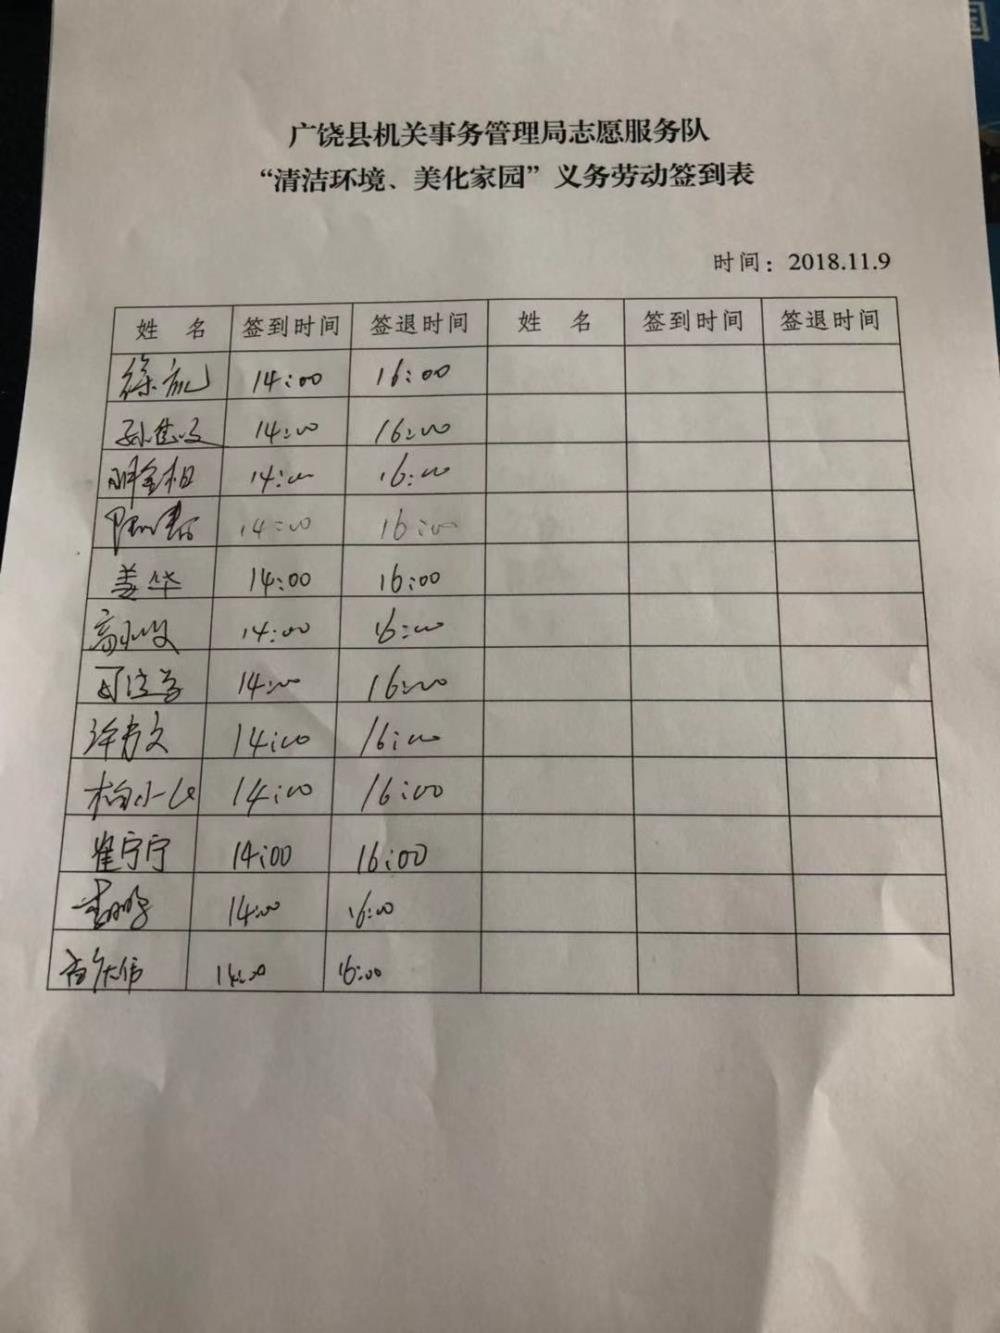 国
广饶县机关事务管理局志愿服务队
“清洁环境、美化家园”义务劳动签到表
时间：2018.11.9
姓 名 签到时间 签退时间 姓 名 签到时间 签退时间
14:00 16:00
14:00 16:00
14:00 16:00
14:00 16:00
姜华 14:00 16:00
14:00 16:00
14:00 16:00
许秀文 14:00 16:00
14:00 16:00
崔宁宁 14:00 16:00
14:00 16:00
14:00 16:00